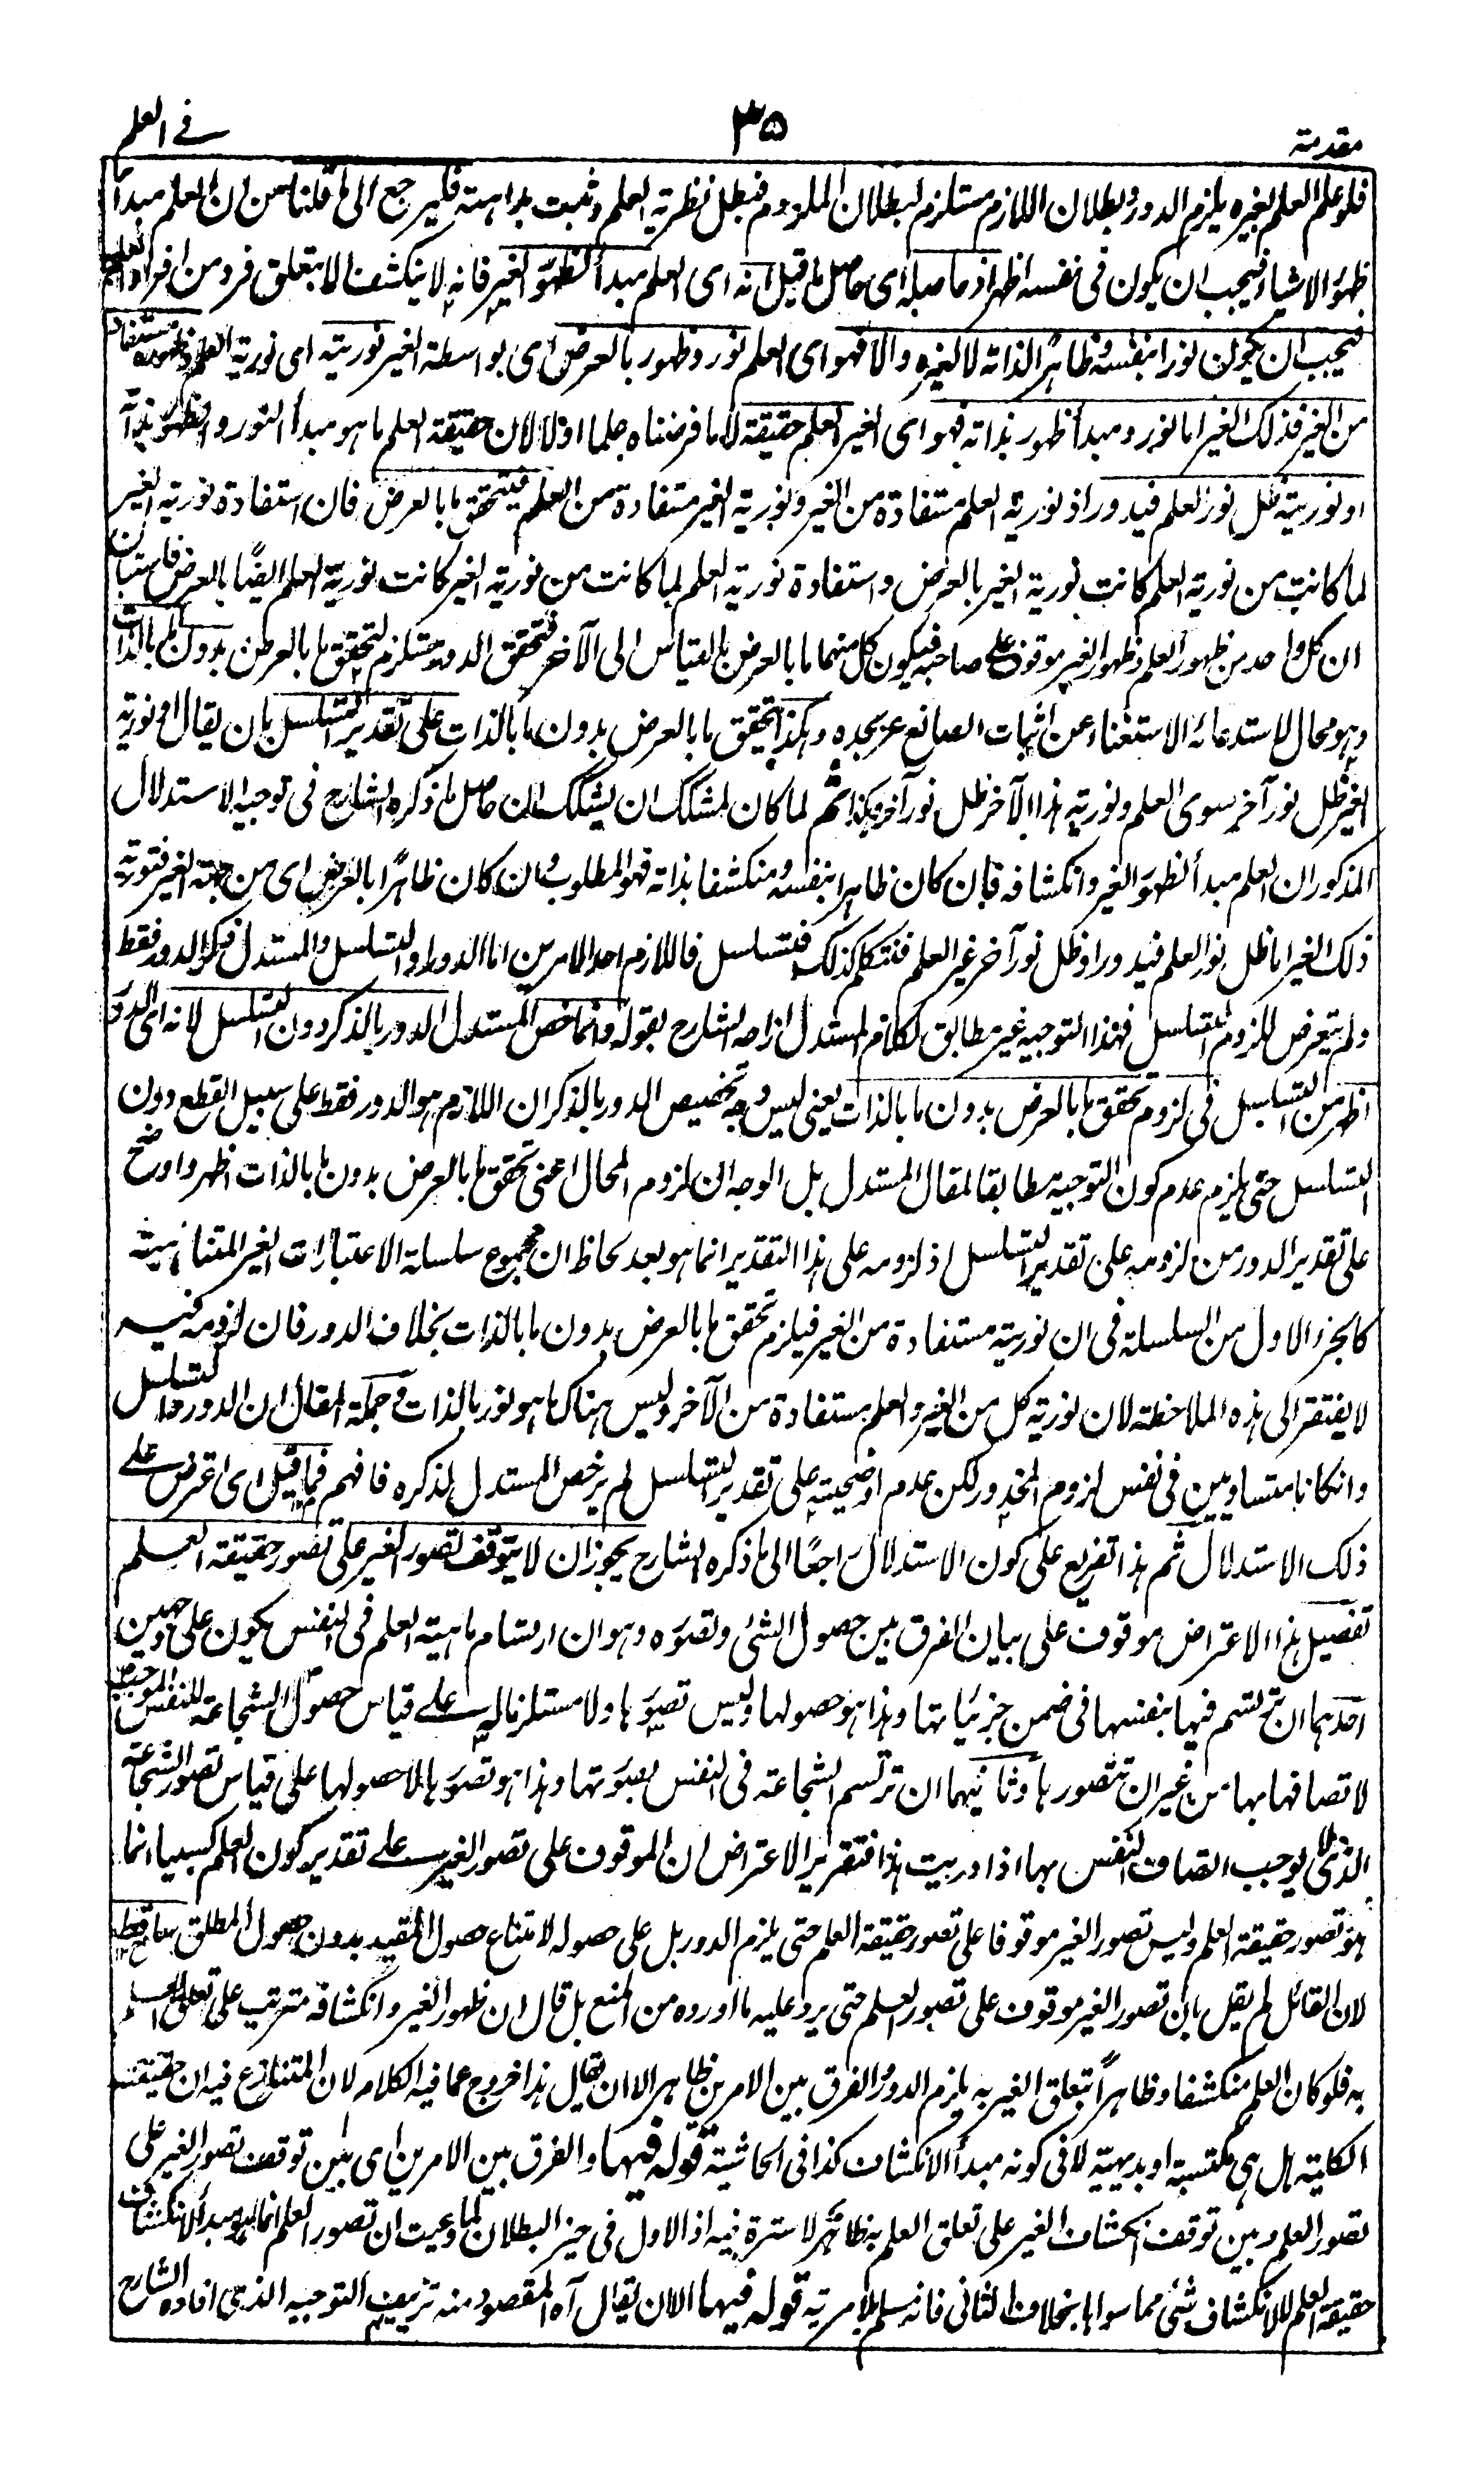 مقدمة ٣٥ في العلم
فلو علم العلم بغيره يلزم الدور وبطلان اللازم مستلزم لبطلان الملزوم فبطل نظرية العلم وثبت بداهته فليرجع الى ما قلنا من ان العلم مبدأ
ظهور الاشياء فيجب ان يكون في نفسه اظهر اذ ما صله اى حاصل ما قيل انه اى العلم مبدأ لظهور الغير فانه لا ينكشف الا بتعلق فرد من افراد العلم
فيجب ان يكون نورا بنفسه وظاهرا لذاته لا لغيره والا فهو اى العلم نور وظهور بالعرض اى بواسطة الغير نوريته اى نورية العلم وظهوره مستفاد
من الغير فذلك الغير اما نور ومبدأ ظهور بذاته فهو اى الغير العلم حقيقة لا ما فرضناه علما اولا لان حقيقة العلم ما هو مبدأ النور والظهور بذاته
او نوريته ظل نور العلم فيدور اذ نورية العلم مستفادة من الغير ونورية الغير مستفادة من العلم فيتحقق ما بالعرض فان استفادة نورية الغير
لما كانت من نورية العلم كانت نورية الغير بالعرض واستفادة نورية العلم لما كانت من نورية الغير كانت نورية العلم ايضا بالعرض فاستبان
ان كل واحد من ظهور العلم وظهور الغير موقوف على صاحبه فيكون كل منهما ما بالعرض بالقياس الى الآخر فتحقق الدور مستلزم لتحقق ما بالعرض بدون ما بالذات
وهو محال لاستدعائه الاستغناء عن اثبات الصانع عز مجده وهكذا يتحقق ما بالعرض بدون ما بالذات على تقدير التسلسل بان يقال او نورية
الغير ظل نور آخر سوى العلم ونورية هذا الآخر ظل نور آخر وهكذا ثم لما كان لمشكك ان يشكك بان حاصل ما ذكره الشارح في توجيه الاستدلال
المذكور ان العلم مبدأ لظهور الغير وانكشافه فان كان ظاهرا بنفسه ومنكشفا بذاته فهو المطلوب وان كان ظاهرا بالعرض اى من جهة الغير فنورية
ذلك الغير اما ظل نور العلم فيدور او ظل نور آخر غير العلم فنتكلم كذلك فيتسلسل فاللازم احد الامرين اما الدور او التسلسل والمستدل ذكر الدور فقط
ولم يتعرض للزوم التسلسل فهذا التوجيه غير مطابق لكلام المستدل ازاحه الشارح بقوله وانما خص المستدل الدور بالذكر دون التسلسل لانه اى الدور
اظهر من التسلسل في لزوم تحقق ما بالعرض بدون ما بالذات يعنى ليس وجه تخصيص الدور بالذكر ان اللازم هو الدور فقط على سبيل القطع دون
التسلسل حتى يلزمه عدم كون التوجيه مطابقا لمقال المستدل بل الوجه ان لزوم المحال اعنى تحقق ما بالعرض بدون ما بالذات اظهر واوضح
على تقدير الدور من لزومه على تقدير التسلسل اذ لزومه على هذا التقدير انما هو بعد لحاظ ان مجموع سلسلة الاعتبارات الغير المتناهية
كالجزء الاول من السلسلة في ان نوريته مستفادة من الغير فيلزم تحقق ما بالعرض بدون ما بالذات بخلاف الدور فان لزومه فيه
لا يفتقر الى هذه الملاحظة لان نورية كل من الغير والعلم مستفادة من الآخر وليس هناك ما هو نور بالذات وجملة المقال ان الدور والتسلسل
وانكانا متساويين في نفس لزوم المحذور لكن عدم اوضحيته على تقدير التسلسل لم يرخص المستدل لذكره فافهم فما قيل اى اعترض على
ذلك الاستدلال ثم هذا تفريع على كون الاستدلال راجعا الى ما ذكره الشارح يجوز ان لا يتوقف تصور الغير على تصور حقيقة العلم
تفصيل هذا الاعتراض موقوف على بيان الفرق بين حصول الشئ وتصوره وهو ان ارتسام ماهية العلم في النفس يكون على وجهين
احدهما ان ترتسم فيها بنفسها في ضمن جزئياتها وهذا هو حصولها وليس تصورها ولا مستلزما له على قياس حصول الشجاعة للنفس الموجب
لاتصافها بها من غير ان تتصورها وثانيهما ان ترتسم الشجاعة في النفس بصورتها وهذا هو تصورها لا حصولها على قياس تصور الشجاعة
الذى لا يوجب اتصاف النفس بها اذا دريت هذا فتقرير الاعتراض ان الموقوف على تصور الغير على تقدير كون العلم كسبيا انما
هو تصور حقيقة العلم وليس تصور الغير موقوفا على تصور حقيقة العلم حتى يلزم الدور بل على حصوله لامتناع حصول المقيد بدون حصول المطلق ساقط
لان القائل لم يقل بان تصور الغير موقوف على تصور العلم حتى يرد عليه ما اورده من المنع بل قال ان ظهور الغير وانكشافه مترتب على تعلق العلم
به فلو كان العلم منكشفا وظاهرا بتعلق الغير به يلزم الدور والفرق بين الامرين ظاهر الا ان يقال هذا خروج عما فيه الكلام لان المتنازع فيه ان حقيقته
الكلية هل هى مكتسبة او بديهية لا في كونه مبدأ الانكشاف كذا في الحاشية قوله فيها والفرق بين الامرين اى بين توقف تصور الغير على
تصور العلم وبين توقف انكشاف الغير على تعلق العلم به ظاهر لا سترة فيه اذ الاول في حيز البطلان لما وعيت ان تصور العلم انما هو مبدأ لانكشاف
حقيقة العلم لا لانكشاف شئ مما سواها بخلاف الثانى فانه مسلم بلا مرية قوله فيها الا ان يقال آه المقصود منه تزييف التوجيه الذى افاده الشارح